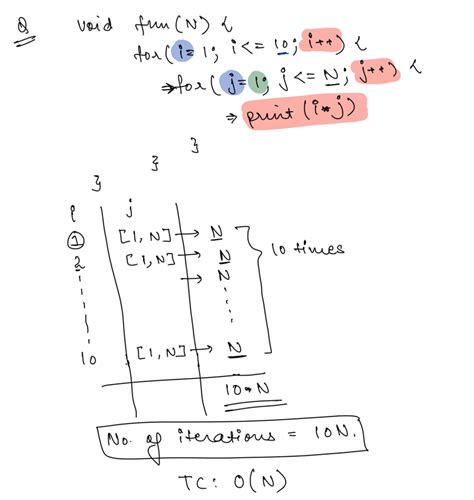 Q void fun(N) {
for( i= 1; i<= 10; i++) {
→for( j= 1; j <= N; j++) {
⇒ print (i*j)
}
}
}
i j
1 [1,N] → N
2 [1,N] → N
→ N
10 [1,N] → N
10 times
10*N
No. of iterations = 10N.
TC: O(N)